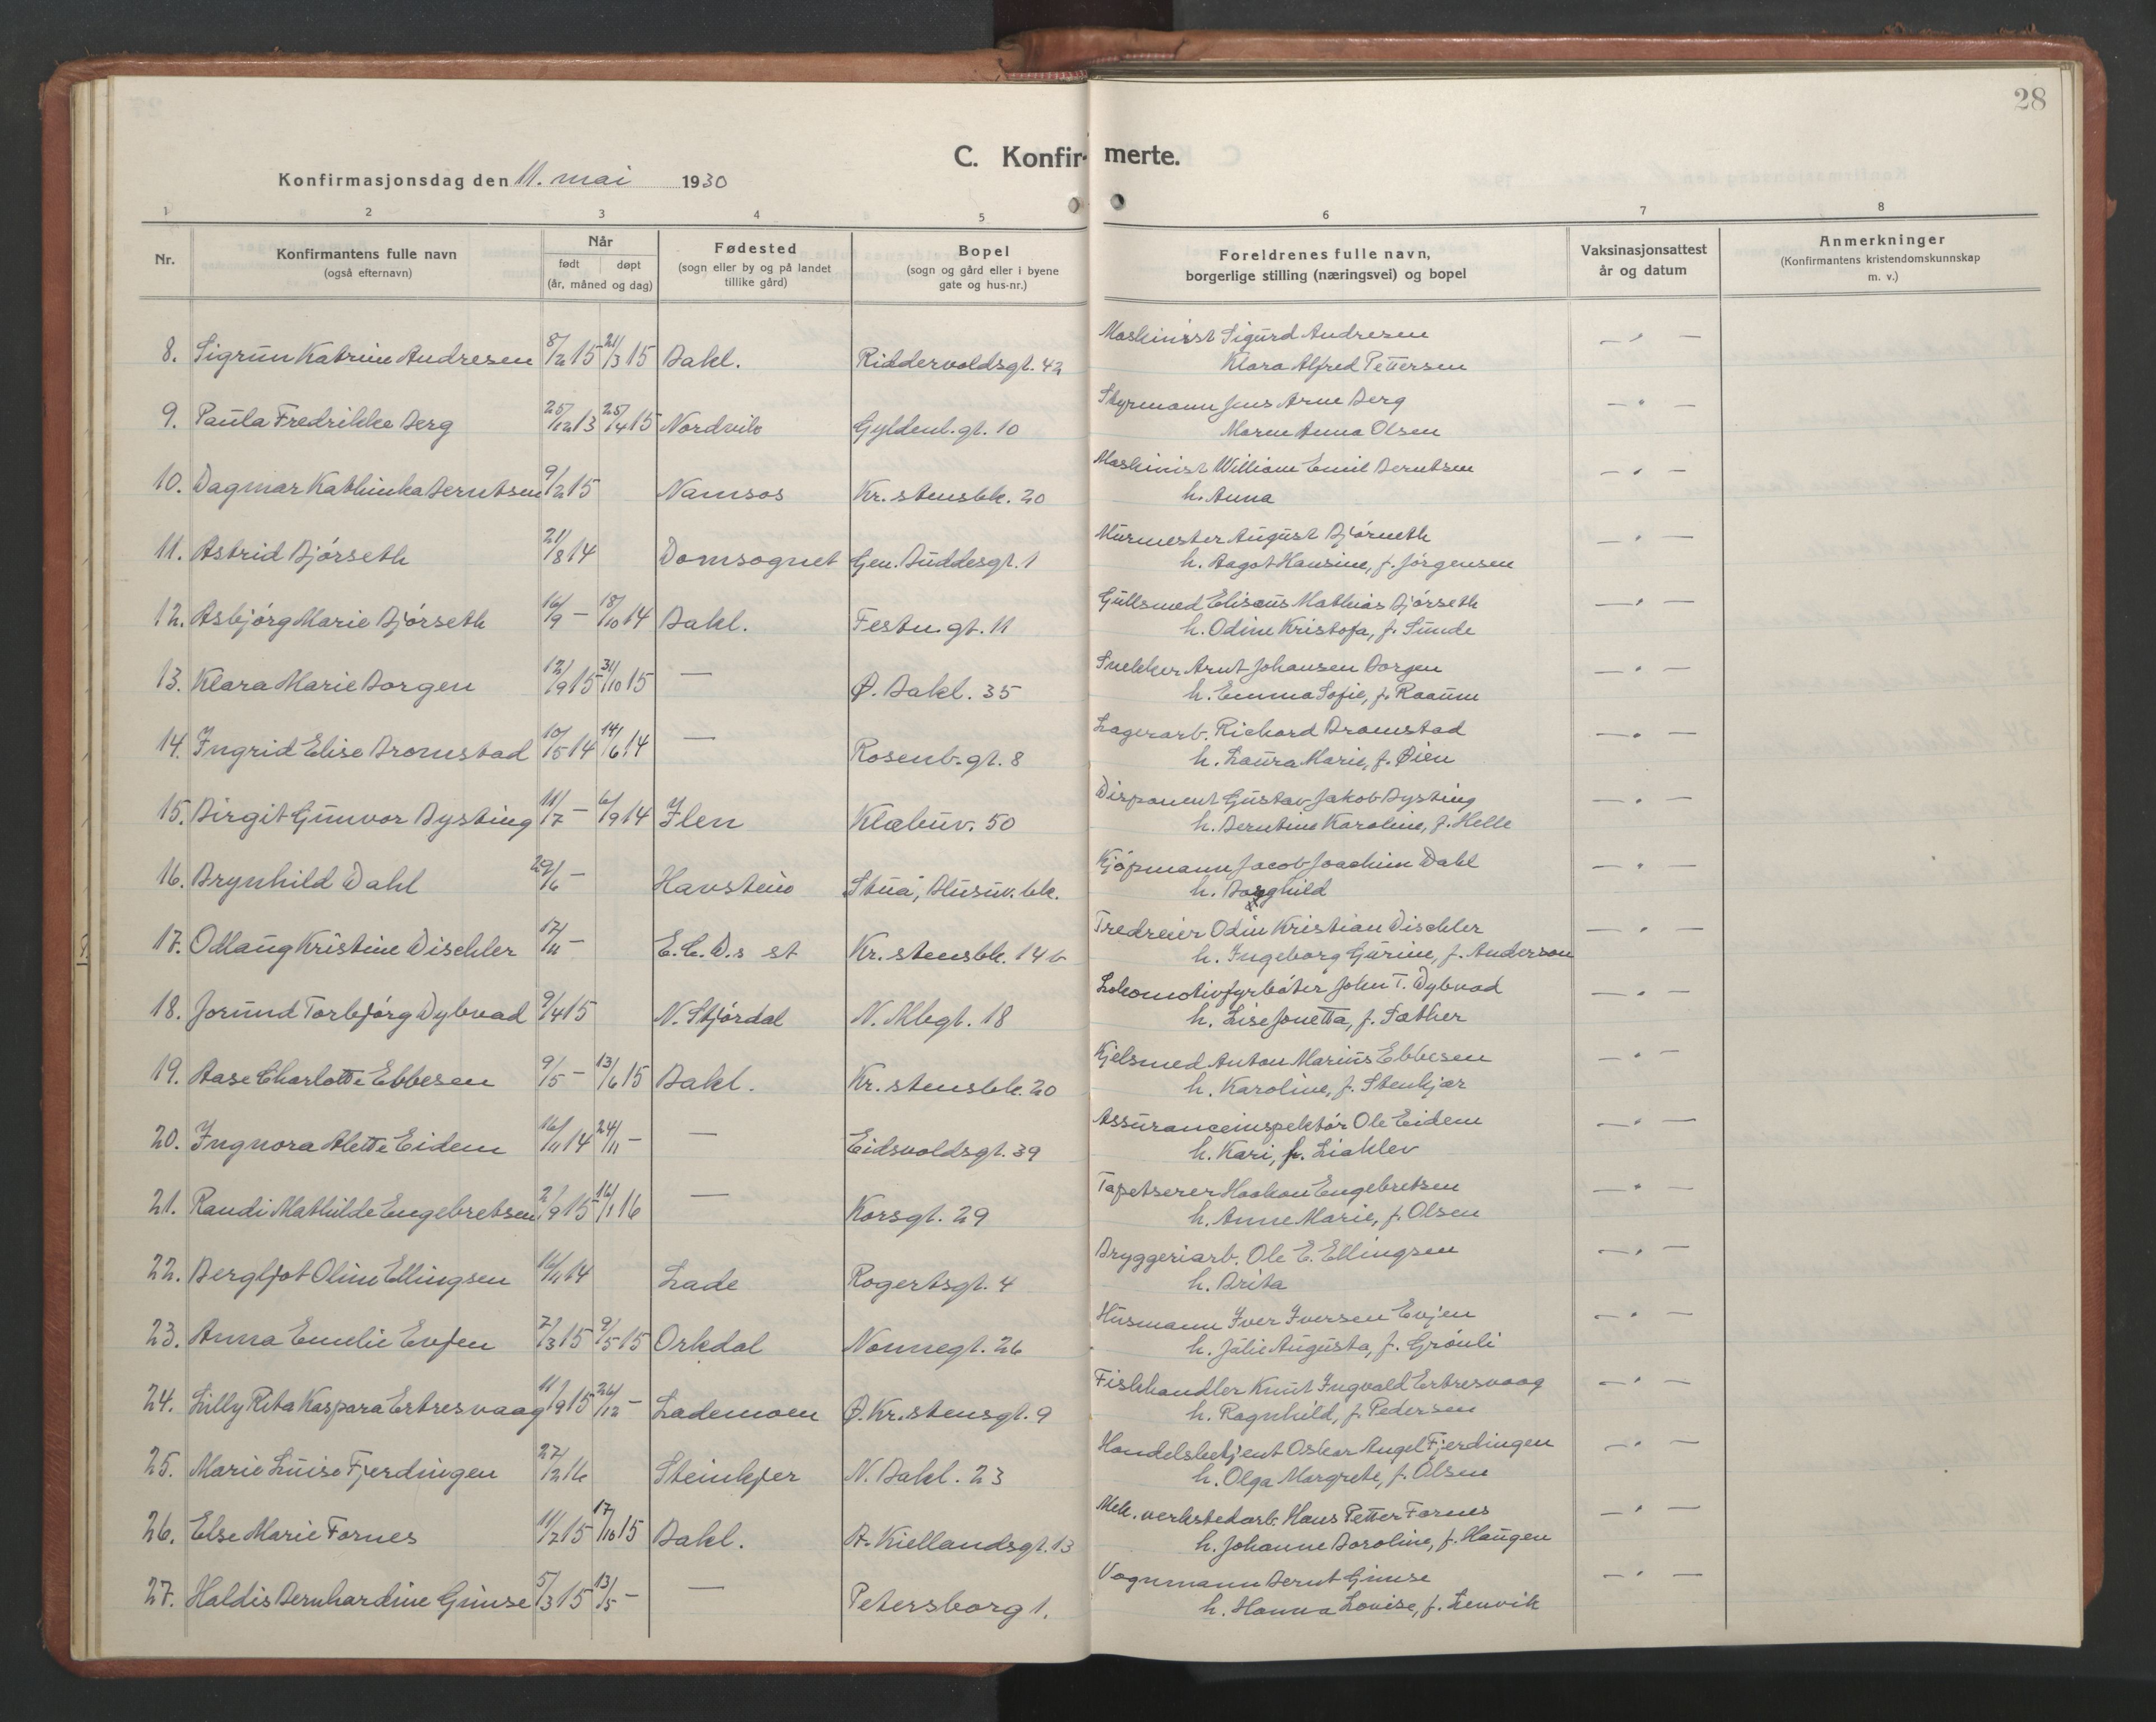 28
C. Konfirmerte.
Konfirmasjonsdag den 11. mai 1930
1 2 3 4 5 6 7 8
Nr. Konfirmantens fulle navn (også efternavn) Når født døpt (år, måned og dag) Fødested (sogn eller by og på landet tillike gård) Bopel (sogn og gård eller i byene gate og hus-nr.) Foreldrenes fulle navn, borgerlige stilling (næringsvei) og bopel Vaksinasjonsattest år og datum Anmerkninger (Konfirmantens kristendomskunnskap m. v.)
8. Sigrun Katrine Andresen 8/2 15 21/3 15 Bakl. Riddervoldsgt. 42 Maskinist Sigurd Andresen — " —
Klara Alfred Pettersen
9. Paula Fredrikke Berg 25/12 13 25/4 15 Nordvik Gyldenl. gt. 10 Styrmann Jens Arne Berg — " —
Maren Anna Olsen
10. Dagmar Kathinka Berntsen 9/2 15 Namsos Kr. stensbk. 20 Maskinist William Emil Berntsen — " —
h. Anna
11. Astrid Bjørseth 21/8 14 Domsognet Gen. Buddesgt. 1 Murmester August Bjørseth — " —
h. Aagot Hansine, f. Jørgensen
12. Asbjørg Marie Bjørseth 16/9 — 18/10 14 Bakl. Festn. gt. 11 Gullsmed Elisæus Mathias Bjørseth — " —
h. Odine Kristofa, f. Sunde
13. Klara Marie Borgen 12/9 15 31/10 15 — Ø. Bakl. 35 Snekker Arnt Johansen Borgen — " —
h. Emma Sofie, f. Raaum
14. Ingrid Elise Bromstad 10/5 14 14/6 14 — Rosenb. gt. 8 Lagerarb. Richard Bromstad — " —
h. Laura Marie, f. Øien
15. Birgit Gunvor Bysting 11/7 — 6/9 14 Ilen Klæbuv. 50 Disponent Gustav Jakob Bysting — " —
h. Berntine Karoline, f. Helle
16. Brynhild Dahl 29/6 — Havstein Stuå, Blusuv. bk. Kjøpmann Jacob Joachim Dahl — " —
h. Borghild
17. Odlaug Kristine Dischler 17/11 — E. C. D.s st Kr. stensbk. 14 b Tredreier Odin Kristian Dischler — " —
h. Ingeborg Gurine, f. Anderson
18. Jorund Torbjørg Dybvad 9/4 15 N. Stjørdal N. Allegt. 18 Lokomotivfyrbøter John T. Dybvad — " —
h. Lise Jonetta, f. Sæther
19. Aase Charlotte Ebbesen 9/5 — 13/6 15 Bakl. Kr. stensbk. 20 Kjelsmed Anton Marius Ebbesen — " —
h. Karoline, f. Stenkjær
20. Ingnora Alette Eidem 16/11 14 24/11 — — Eidsvoldsgt. 39 Assuranceinspektør Ole Eidem — " —
h. Kari, f. Liaklev
21. Randi Mathilde Engebretsen 2/9 15 16/1 16 — Korsgt. 29 Tapetserer Haakon Engebretsen — " —
h. Anne Marie, f. Olsen
22. Bergljot Oline Ellingsen 16/11 14 Lade Rogertsgt. 4 Bryggeriarb. Ole E. Ellingsen — " —
h. Brita
23. Anna Emelie Evjen 7/3 15 9/5 15 Orkdal Nonnegt. 26 Husmann Iver Iversen Evjen — " —
h. Julie Augusta, f. Grønli
24. Lilly Rita Kaspara Ertresvaag 11/9 15 26/12 — Lademoen Ø. Kr. stensgt. 9 Fiskhandler Knut Ingvald Ertresvaag — " —
h. Ragnhild, f. Pedersen
25. Marie Luise Fjerdingen 27/2 16 Steinkjer N. Bakl. 23 Handelsbetjent Oskar Angel Fjerdingen — " —
h. Olga Margrete, f. Olsen
26. Else Marie Fornes 11/7 15 17/10 15 Bakl. A. Kiellandsgt. 13 Mek. verkstedarb. Hans Petter Fornes — " —
h. Johanne Boroline, f. Haugen
27. Haldis Bernhardine Gimse 5/3 15 13/5 — — Petersborg 1. Vognmann Bernt Gimse — " —
h. Hanna Lovise, f. Lenvik